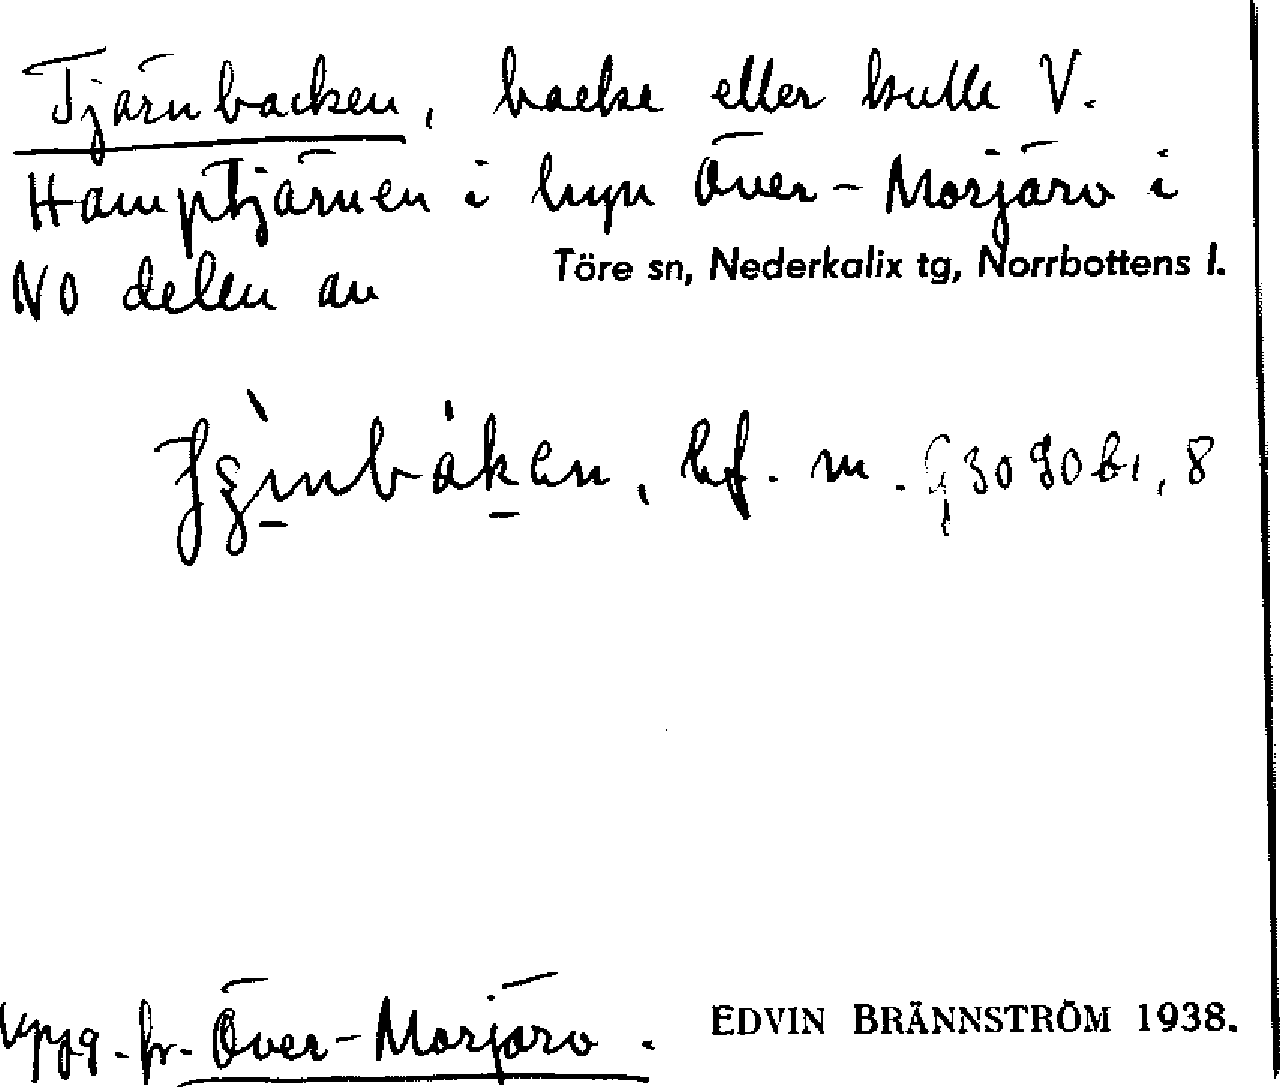 Tjärnbacken, backe eller kulle V.
Hamptjärnen i byn Över-Morjärv i
NO delen av
Töre sn, Nederkalix tg, Norrbottens l.
bf. m.
Uppg. fr. Över-Morjärv.
EDVIN BRÄNNSTRÖM 1938.